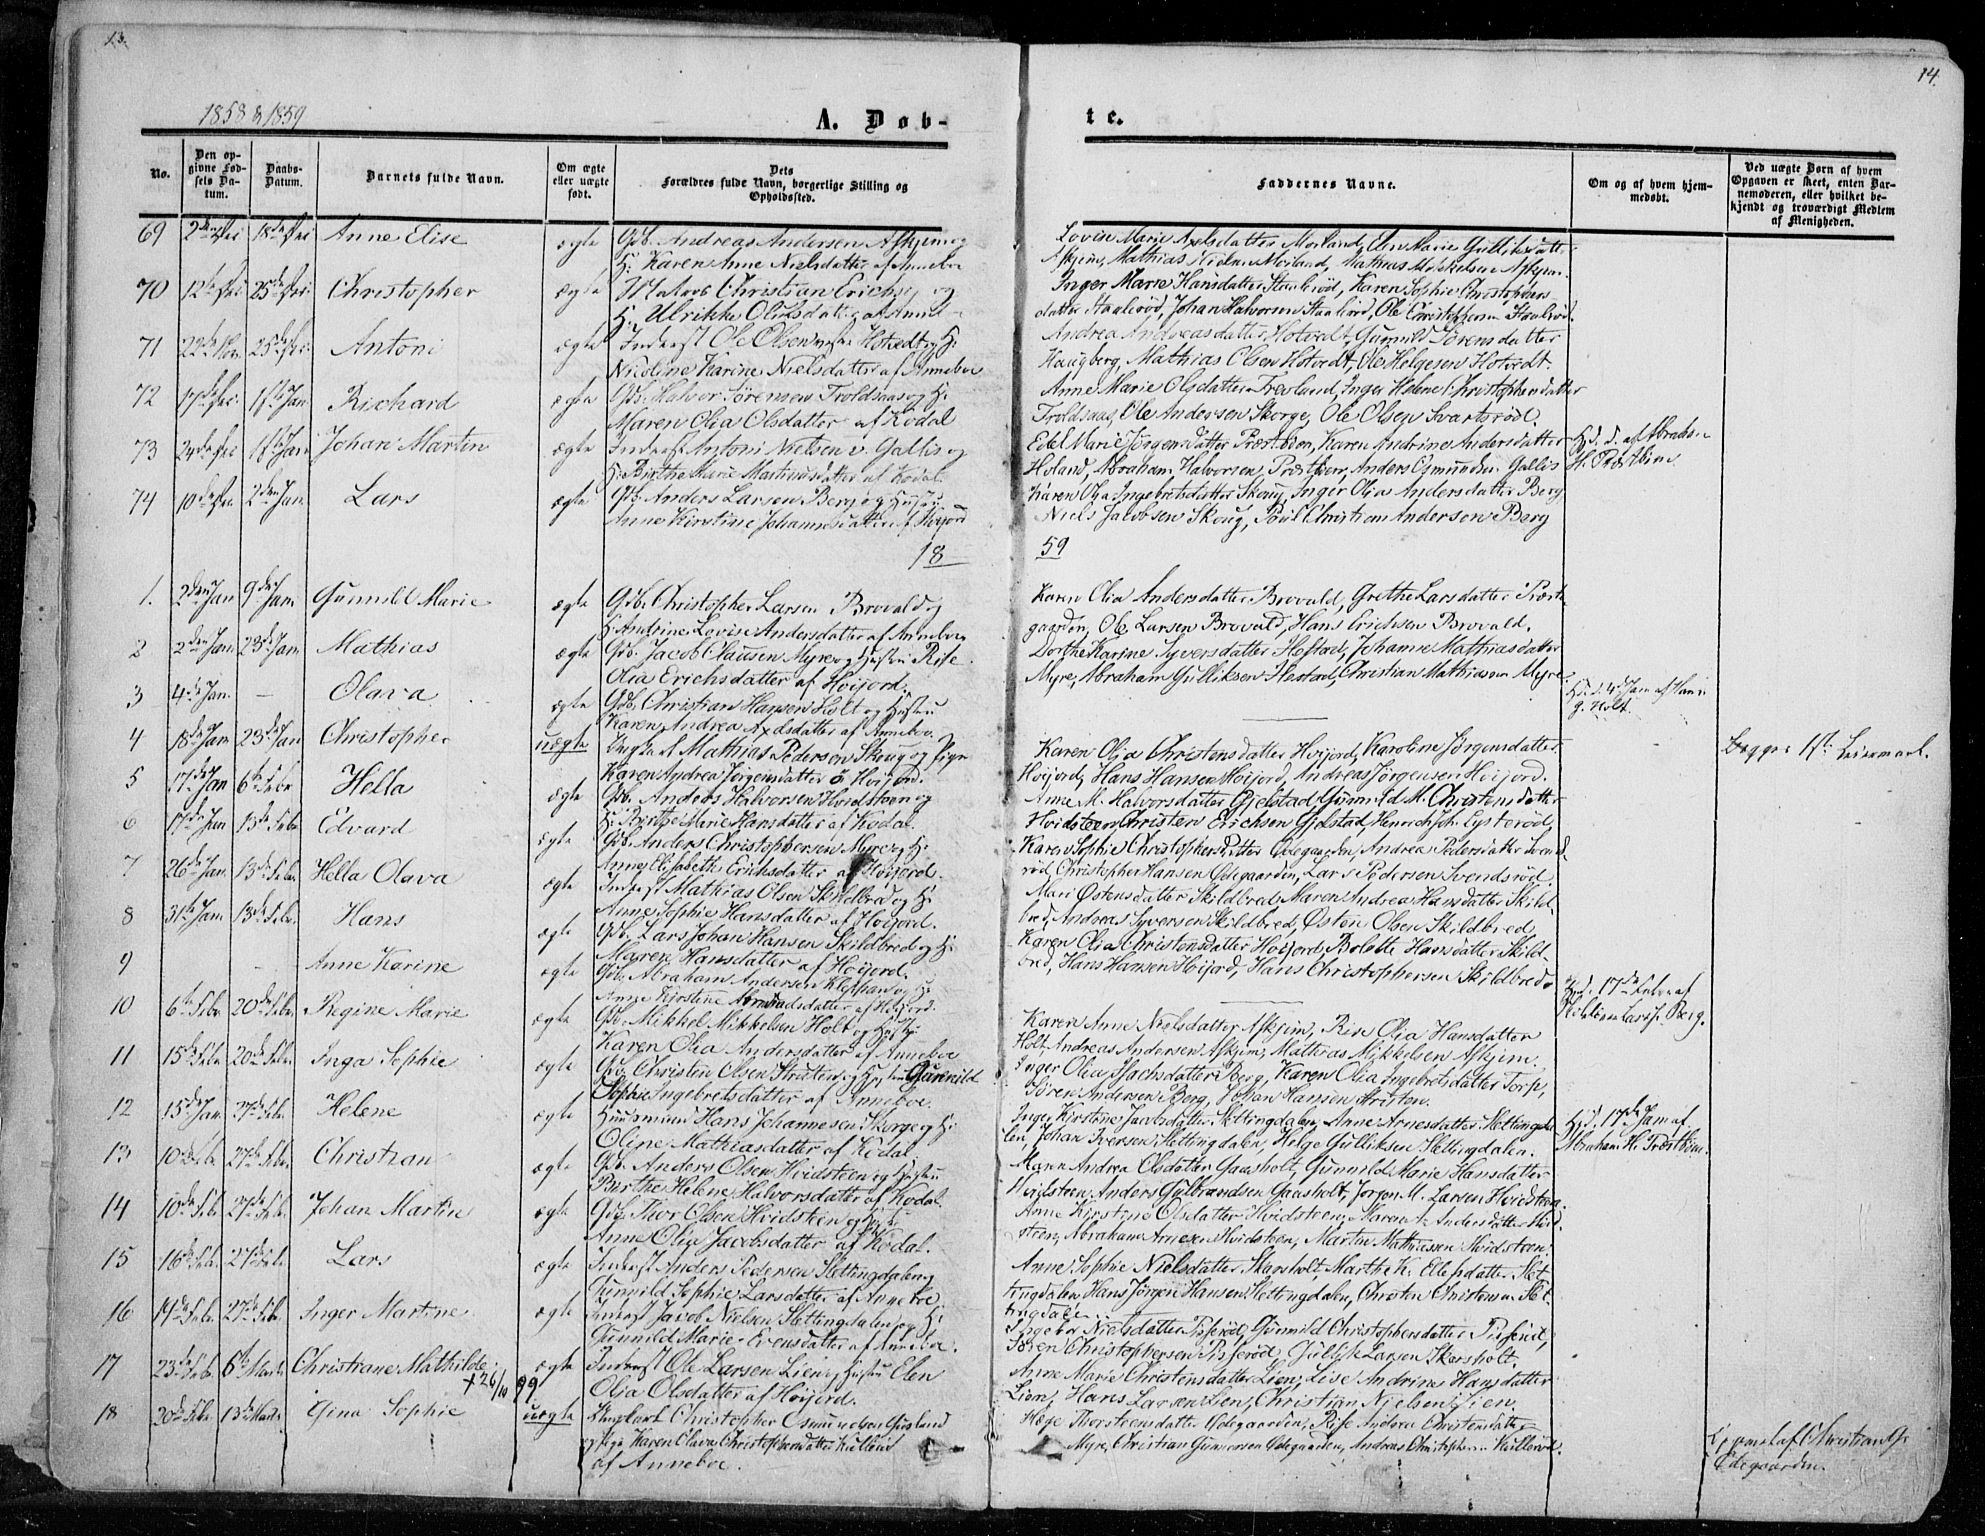 13.
14.
1858 & 1859
A. Døb-
te.
No.
Den op-
givne Fød-
sels Da-
tum.
Daabs-
Datum.
Barnets fulde Navn.
Om ægte
eller uægte
født.
Dets
Forældres fulde Navn, borgerlige Stilling og
Opholdssted.
Faddernes Navne.
Om og af hvem hjem-
medøbt.
Ved uægte Børn af hvem
Opgaven er skeet, enten Bar-
nemoderen, eller hvilket be-
kjendt og troværdigt Medlem
af Menigheden.
69 Anne Elise ægte Gdb. Andreas Andersen Askjem og
H: Karen Anne Nielsdatter af Anneboe
Lovise Marie Axelsdatter Morland, Elen Marie Gulliksdatter
Askjem, Mathias Nielsen Morland, Mathias Mikkelsen Askjem.
70 Christopher ægte Christian Erichs. og
H: Ulrikke
Inger Marie Hansdatter Staalerød, Karen Sophie Christophers
datter Staalerød, Johan Halvorsen Staalerød, Ole Christophersen Staalerød.
71 Antoni ægte Inderst Ole Olsen Hotvedt og H:
Nicoline Karine Nielsdatter af Anneboe
Andrea Andreasdatter Hotvedt, Gunnild Sørensdatter
Haugberg, Mathias Olsen Hotvedt, Ole Helgesen Hotvedt.
72 Richard ægte Gdb. Halvor Sørensen Troldsaas og H:
Maren Olia Olsdatter af Kodal
Anne Marie Olsdatter Trevland, Inger Helene Christophersdatter
Troldsaas, Ole Andersen Skorge, Ole Olsen Svartsrød.
73 Johan Martin ægte Inderst Antoni Nielsen Gallis og
H: Birthe Marie Martinusdatter af Kodal.
Edel Marie Jørgensdatter Præstbøen, Karen Andrine Andersdatter
Holand, Abraham Halvorsen Præstbøen, Anders Osmundsen Gallis
Hj. d. af Abraham
H. Præstbøen
74 Lars ægte Gdb. Anders Larsen Berg og Hustru
Anne Kirstine Johannesdatter af Høijord
Karen Olia Ingebretsdatter Skoug, Inger Olia Andersdatter Berg
Niels Jacobsen Skoug, Poul Christian Andersen Berg
18 59
1. 2den Jan 9de Jan. Gunnild Marie ægte Gdb. Christopher Larsen Brovald og
H: Andrine Lovise Andersdatter af Anneboe
Karen Olia Andersdatter Brovald, Grethe Larsdatter Præst-
gaarden, Ole Larsen Brovald, Hans Erichsen Brovald.
2 2den Jan 23de Jan Mathias ægte Gdb. Jacob Clausen Myre og Hustru Rise
Olia Erichsdatter af Høijord.
Dorthe Karine Syversdatter Hestod, Johanne Mathiasdatter
Myre, Abraham Gulliksen Hestod, Christian Mathiasen Myre.
3 4de Jan. – Olava ægte Gdb. Christian Hansen Holt og Hustru
Karen Andrea Axelsdatter af Anneboe.
Hj. d. 4de Jan af Han
g. Holt.
4 18de Jan 23de Jan Christopher uægte Ungkarl Mathias Pedersen Skoug og Pige
Karen Andrea Jørgensdatter af Høijord.
Karen Olia Christensdatter Høijord, Karoline Jørgensdatter
Høijord, Hans Hansen Høijord, Andreas Jørgensen Høijord.
Begges 1ste Leiermaal.
5 17de Jan 6te Febr Hella ægte Gdb. Anders Halvorsen Hvidsteen og
H: Birthe Marie Hansdatter af Kodal.
Anne M. Halvorsdatter Gjelstad, Gunnild M. Christensdatter
Hvidsteen, Christen Erichsen Gjelstad, Henrich Joh. Lysterød.
6 17de Jan 13de Febr. Edvard ægte Gdb. Anders Christophersen Myre og H:
Anne Elisabeth Erichsdatter af Høijord.
Karen Sophie Christophersdatter Ødegaarden, Andrea Pedersdatter Svends-
rød, Christopher Hansen Ødegaarden, Lars Pedersen Svendsrød.
7 26de Jan. 13de Febr. Hella Olava ægte Inderst Mathias Olsen Skildbred og H:
Anne Sophie Hansdatter af Høijord.
Mari Østensdatter Skildbred, Maren Andrea Hansdatter Skild-
bred, Andreas Syversen Skildbred, Østen Olsen Skildbred
8 31te Jan. 13de Febr. Hans ægte Gdb. Lars Johan Hansen Skildbred og H:
Maren Hansdatter af Høijord.
Karen Olia Christensdatter Høijord, Bolette Hansdatter Skild-
bred, Hans Hansen Høijord, Hans Christophersen Skildbred.
9 – Anne Karine ægte Gdb. Abraham Andersen
Anne Kirstine af Høijord.
Hj. d. 17de Febr af
Larss. Berg.
10 6te Febr. 20de Febr. Regine Marie ægte Gdb. Mikkel Mikkelsen Holt og Hustru
Karen Olia Andersdatter af Anneboe
Karen Anne Nielsdatter Askjem, Olia Hansdatter
Holt, Andreas Andersen Askjem, Mathias Mikkelsen Askjem.
11 15de Febr. 20de Febr. Inga Sophie ægte Gdb. Christen Olsen og Hustru Gunnild
Sophie Ingebretsdatter af Anneboe.
Inger Olia Isachsdatter Berg, Karen Olia Ingebretsdatter Torp,
Søren Andersen Berg, Johan Hansen
12 15de Jan. 27de Febr. Helene ægte Huusmand Hans Johannesen Skorge og H:
Oline Mathiasdatter af Kodal.
Inger Kirstine Jacobsdatter Slettingdalen, Anne Arnesdatter Slettingda-
len, Johan Iversen Slettingdalen, Helge Gulliksen Slettingdalen.
Hj. d. 17de Jan af
Abraham H. Præstbøen.
13 10de Febr. 27de Febr. Christian ægte Gdb. Anders Olsen Hvidsteen og Hustru
Birthe Helene Halvorsdatter af Kodal.
Maren Andrea Olsdatter Gaasholt, Gunnild Marie Hansdatter
Hvidsteen, Anders Gulbrandsen Gaasholt, Jørgen M. Larsen Hvidsteen.
14 10de Febr 27de Febr. Johan Martin ægte Gdb. Thor Olsen Hvidsteen og Hustr.
Anne Olia Jacobsdatter af Kodal.
Anne Kirstine Olsdatter Hvidsteen, Maren A. Andersdatter Hvid-
steen, Abraham Arnesen Hvidsteen, Martin Mathiesen Hvidsteen.
15 16de Febr. 27de Febr. Lars ægte Inderst Anders Pedersen Slettingdalen og
Gunnild Sophie Larsdatter af Anneboe
Anne Sophie Nielsdatter Skarsholt, Marthe K. Ellefsdatter Slet-
tingdalen, Hans Jørgen Hansen Slettingdalen, Christen Christensen Slet-
tingdalen.
16 19de Febr. 27de Febr. Inger Martine ægte Inderst Jacob Nielsen Slettingdalen og H:
Gunnild Marie Evensdatter af Anneboe.
Ingebor Nielsdatter Pisserød, Gunnild Christophersdatter Pisserød,
Søren Christophersen Pisserød, Gullik Larsen Skarsholt.
17 23de Febr. 6te Marts Christiane Mathilde ægte Inderst Ole Larsen Lien og Hustru Elen
+26/10 99
Olia Olsdatter af Høijord.
Anne Marie Christensdatter Lien, Lise Andrine Hansdatter
Lien, Hans Larsen Lien, Christian Nielsen Lien.
18 20de Febr. 13de Marts Gina Sophie uægte Ungkarl Christopher Osmundsen Guslund
og Pige Karen Olava Christophersdatter Kullerød
af Anneboe.
Thorsteensdatter Ødegaarden, Rise Andrea Christensdatter
Myre, Christian Gunnersen Ødegaarden, Andreas Christophersen Kullerød.
Opgivet af Christian G.
Ødegaarden.